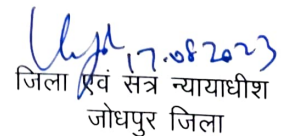 17.08.2023
जिला एवं सत्र न्यायाधीश
जोधपुर जिला